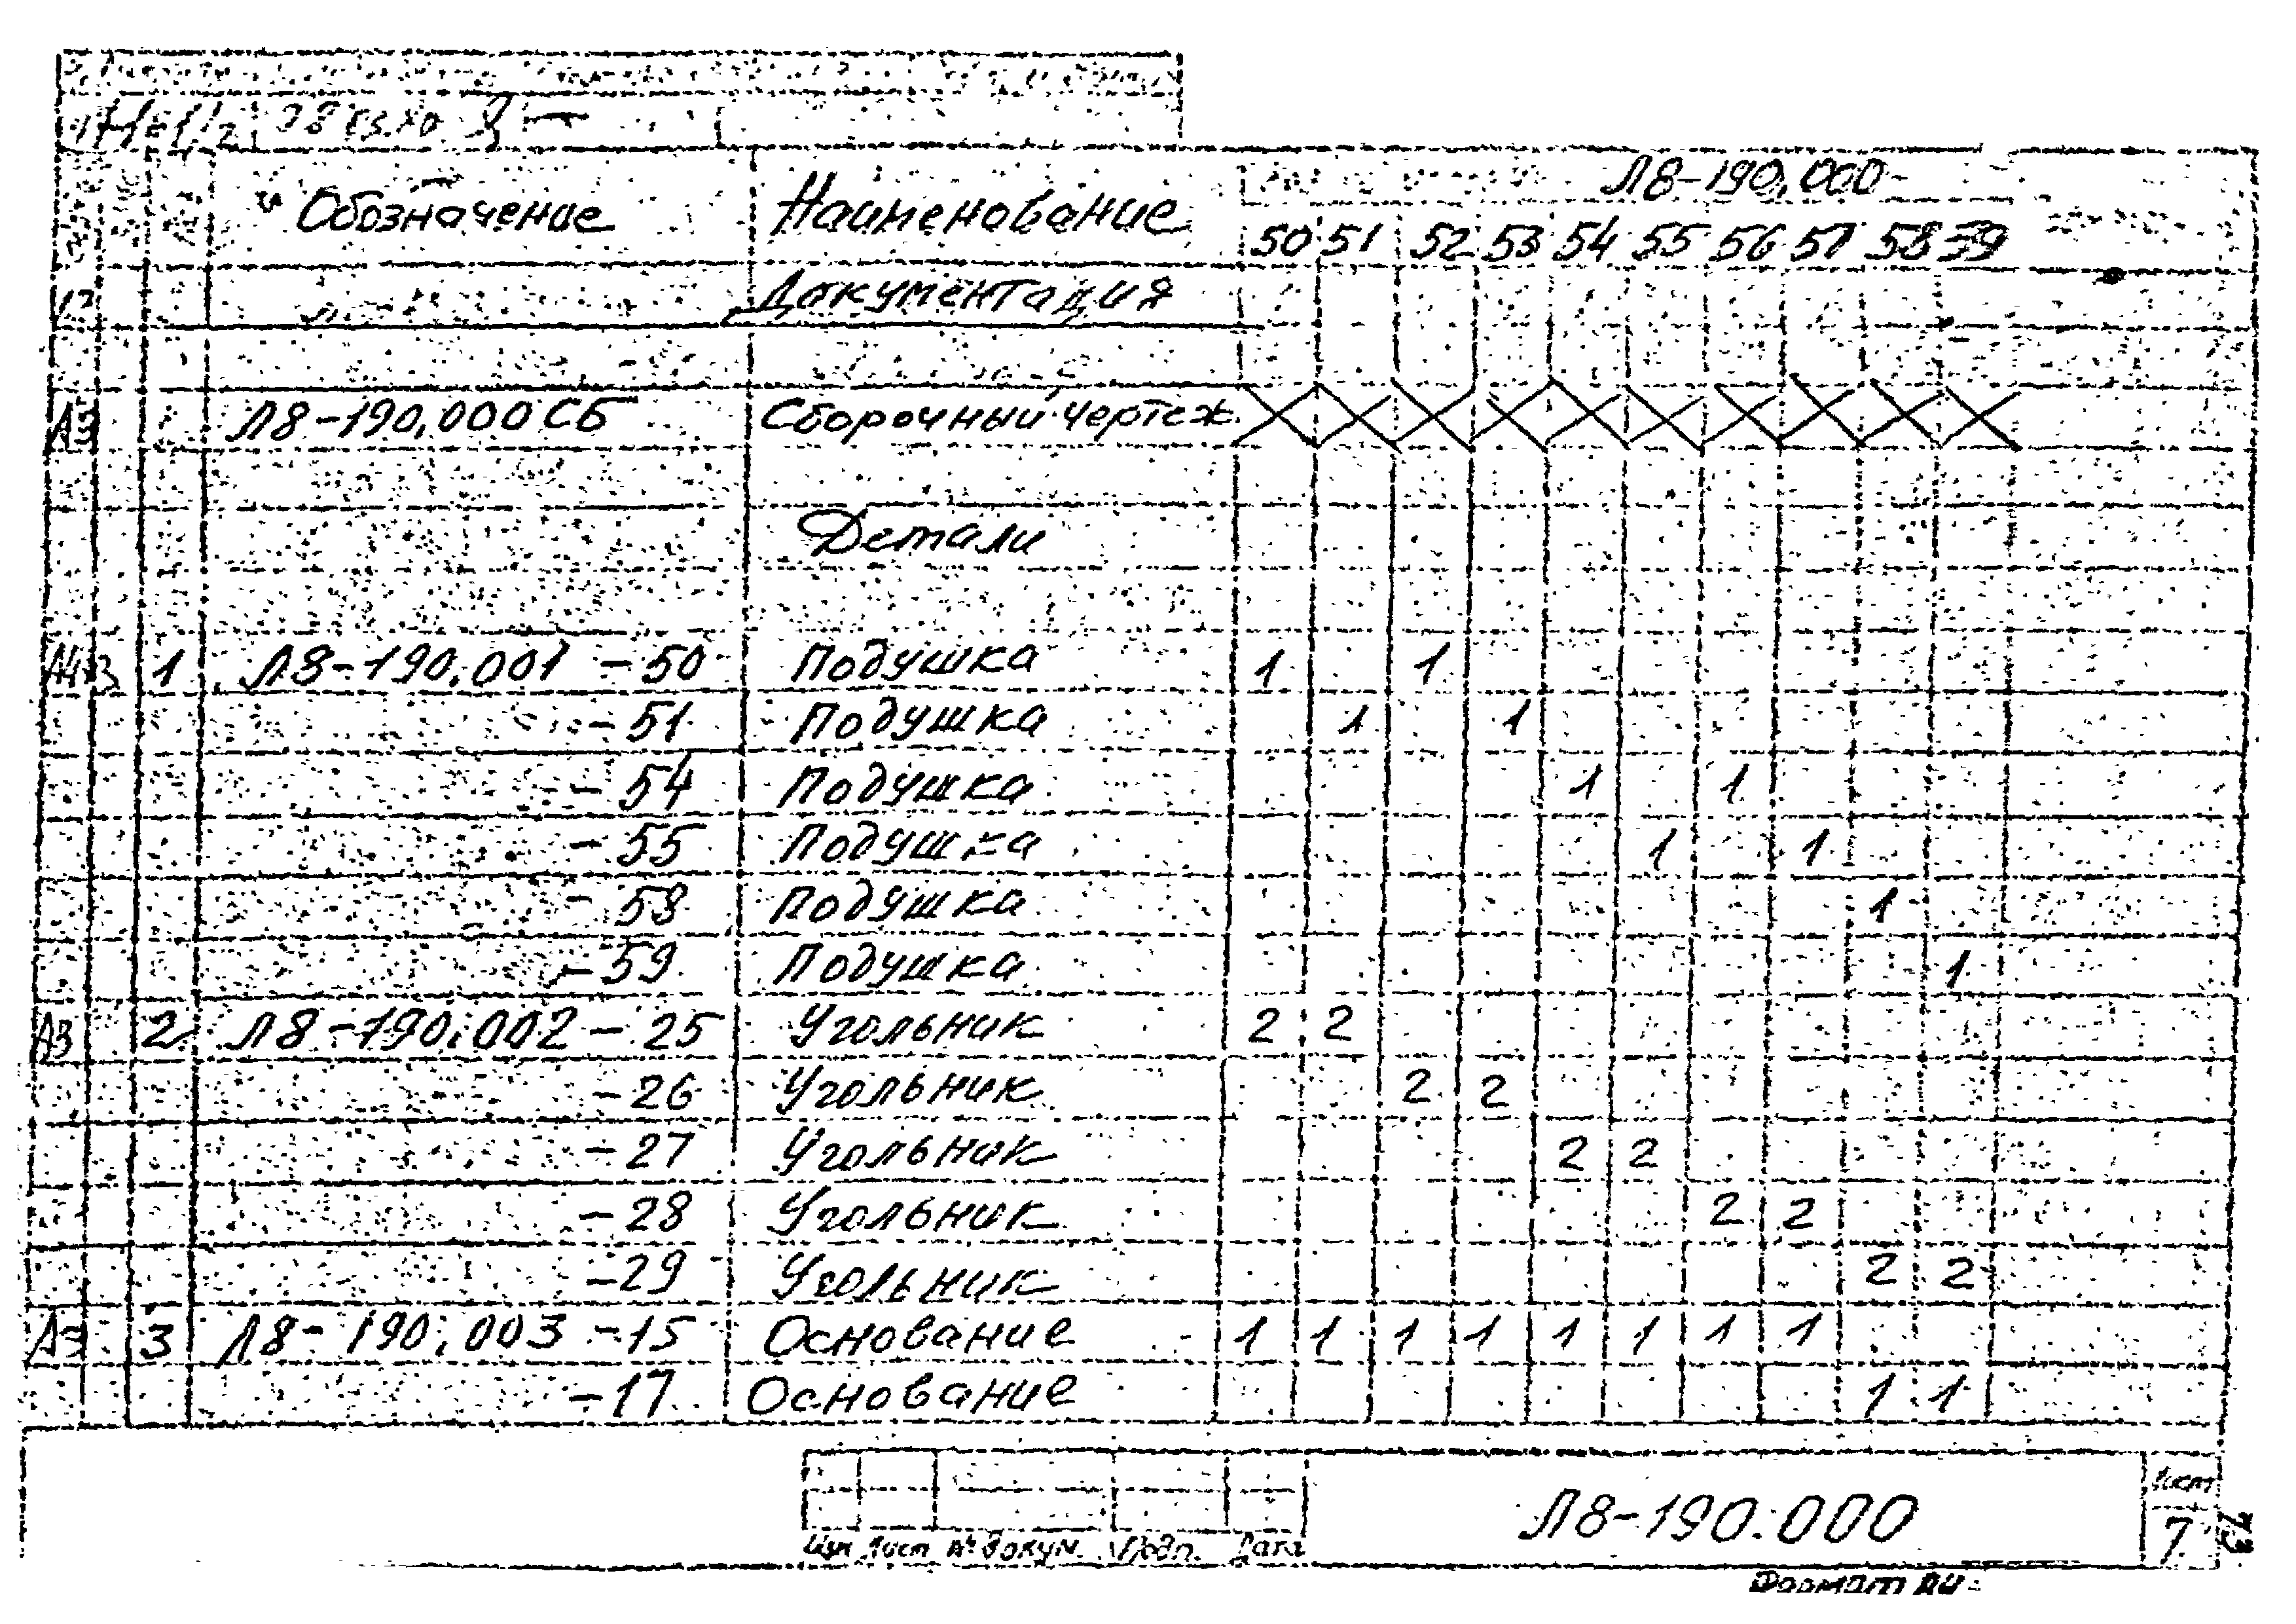 Л8-190.000
Обозначение Наименование 50 51 52 53 54 55 56 57 58 59
Документация
А3 Л8-190.000 СБ Сборочный чертеж
Детали
1 Л8-190.001 -50 Подушка 1 1
-51 Подушка 1 1
-54 Подушка 1 1
-55 Подушка 1 1
-58 Подушка 1
-59 Подушка 1
А3 2 Л8-190.002 -25 Угольник 2 2
-26 Угольник 2 2
-27 Угольник 2 2
-28 Угольник 2 2
-29 Угольник 2 2
А3 3 Л8-190.003 -15 Основание 1 1 1 1 1 1 1 1
-17 Основание 1 1
Л8-190.000
Лист
7
Изм Лист № докум. Подп. Дата
Формат А4